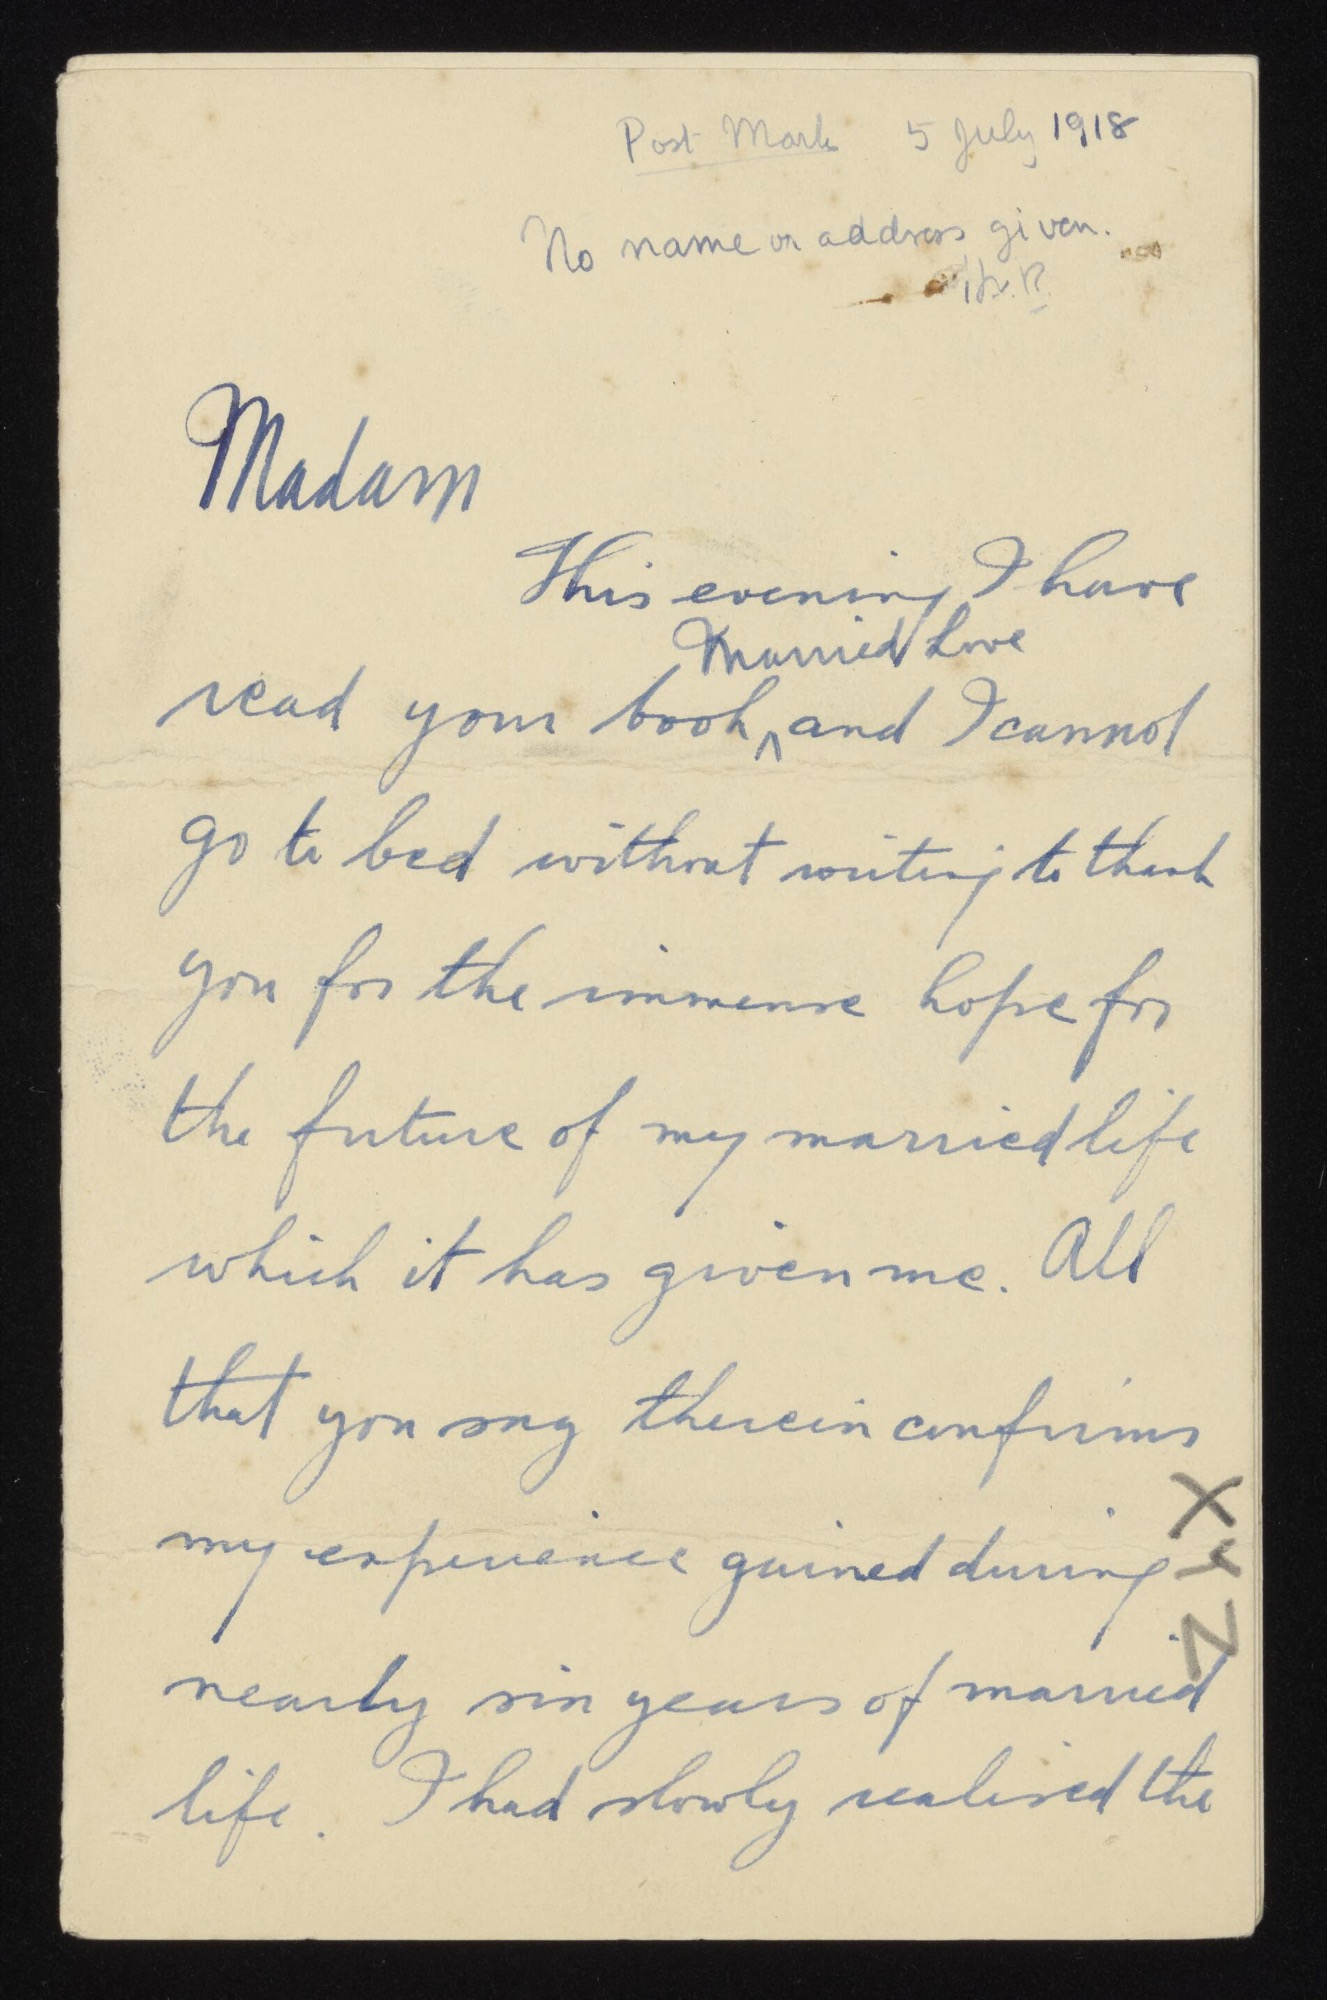 Post Mark 5 July 1918
No name or address given.
Madam
This evening I have
Married Love
read your book ^ and I cannot
go to bed without writing to thank
you for the immense hope for
the future of my married life
which it has given me. All
that you say therein confirms
my experience gained during
nearly six years of married
life. I had slowly realised the
XYZ